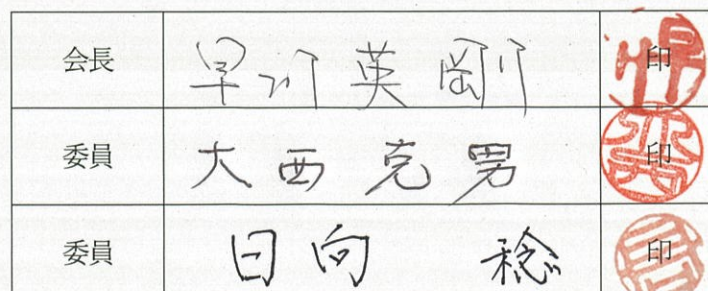 会長 早川英剛 印
委員 大西克男 印
委員 日向 稔 印